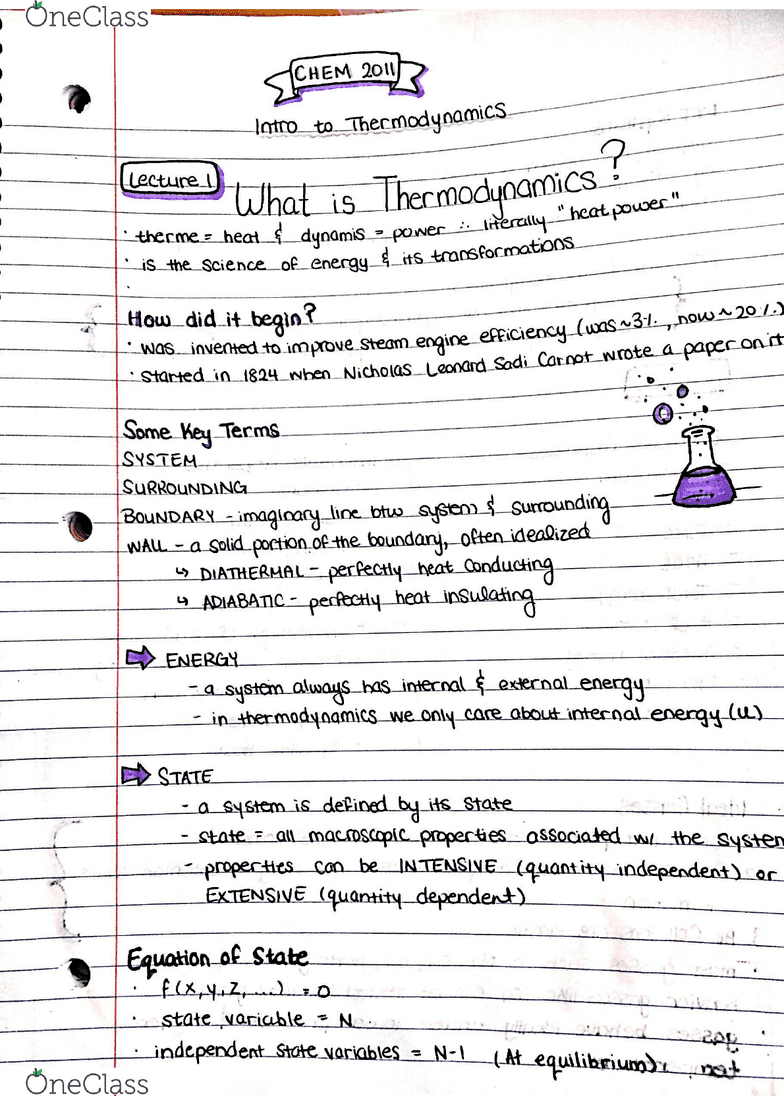 OneClass
CHEM 2011
Intro to Thermodynamics
Lecture 1
What is Thermodynamics?
· therme = heat & dynamis = power ∴ literally "heat power"
· is the science of energy & its transformations
·
How did it begin?
· was invented to improve steam engine efficiency (was ~3%, now ~20%)
· started in 1824 when Nicholas Leonard Sadi Carnot wrote a paper on it
Some Key Terms
SYSTEM
SURROUNDING
BOUNDARY - imaginary line btw system & surrounding
WALL - a solid portion of the boundary, often idealized
↳ DIATHERMAL - perfectly heat conducting
↳ ADIABATIC - perfectly heat insulating
⇒ ENERGY
- a system always has internal & external energy
- in thermodynamics we only care about internal energy (U)
⇒ STATE
- a system is defined by its state
- state = all macroscopic properties associated w/ the system
- properties can be INTENSIVE (quantity independent) or
EXTENSIVE (quantity dependent)
Equation of State
· f(x,y,z,...) = 0
· state variable = N
· independent state variables = N-1 (At equilibrium)
OneClass